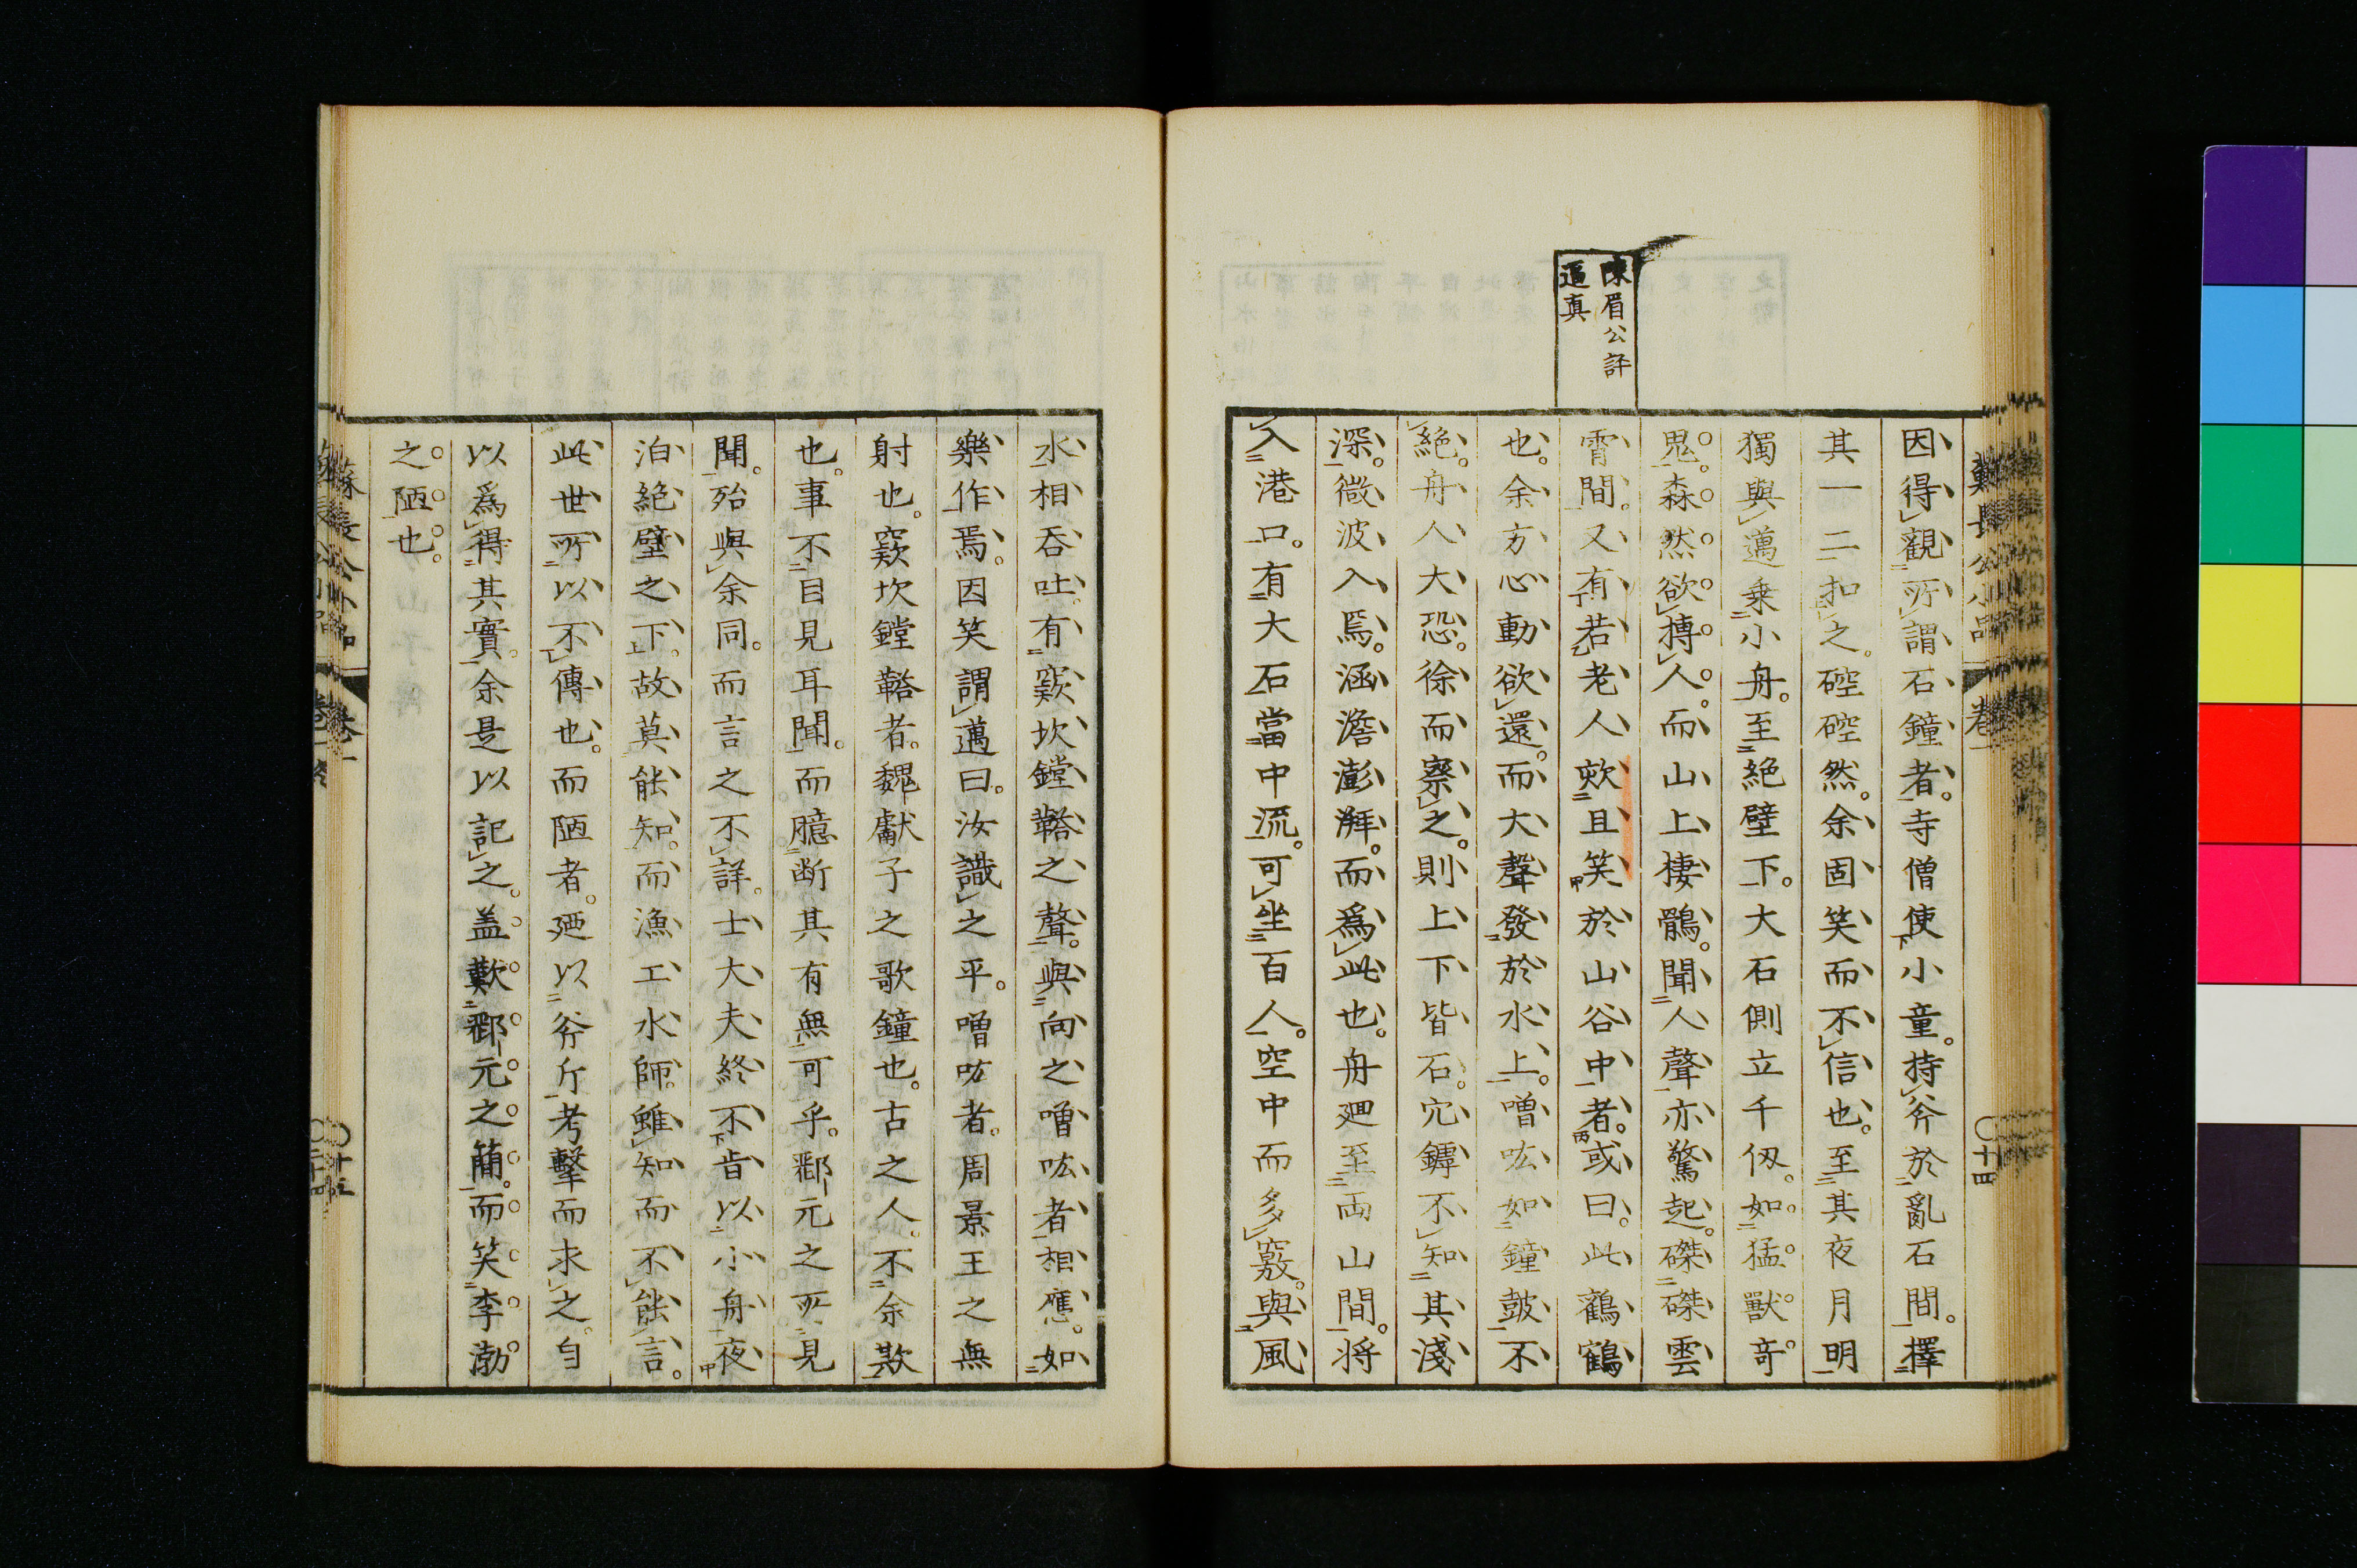 陳眉公評
逼真
因得觀所謂石鐘者。寺僧使小童。持斧於亂石間。擇
其一二扣之。硿硿然。余固笑而不信也。至其夜月明
獨與邁乗小舟。至絕壁下。大石側立千仭。如猛獸奇
鬼。森然欲搏人。而山上棲鶻。聞人聲亦驚起。磔磔雲
霄間。又有若老人欬且笑於山谷中者。或曰。此鸛鶴
也。余方心動欲還。而大聲發於水上。噌吰如鐘鼓不
絕。舟人大恐。徐而察之。則上下皆石穴罅不知其淺
深。微波入焉。涵澹澎湃。而爲此也。舟廻至両山間。将
入港口。有大石當中流。可坐百人。空中而多竅。與風
水相吞吐。有窾坎鏜鞳之聲。與向之噌吰者相應。如
樂作焉。因笑謂邁曰。汝識之乎。噌吰者。周景王之無
射也。窾坎鏜鞳者。魏獻子之歌鐘也。古之人。不余欺
也。事不目見耳聞。而臆断其有無可乎。酈元之所見
聞。殆與余同。而言之不詳。士大夫終不肯以小舟夜
泊絕壁之下。故莫能知。而漁工水師。雖知而不能言。
此世所以不傳也。而陋者。廼以斧斤考擊而求之。自
以爲得其實。余是以記之。盖歎酈元之簡。而笑李渤
之。陋也。
蘇長公小品
卷一
〇十四